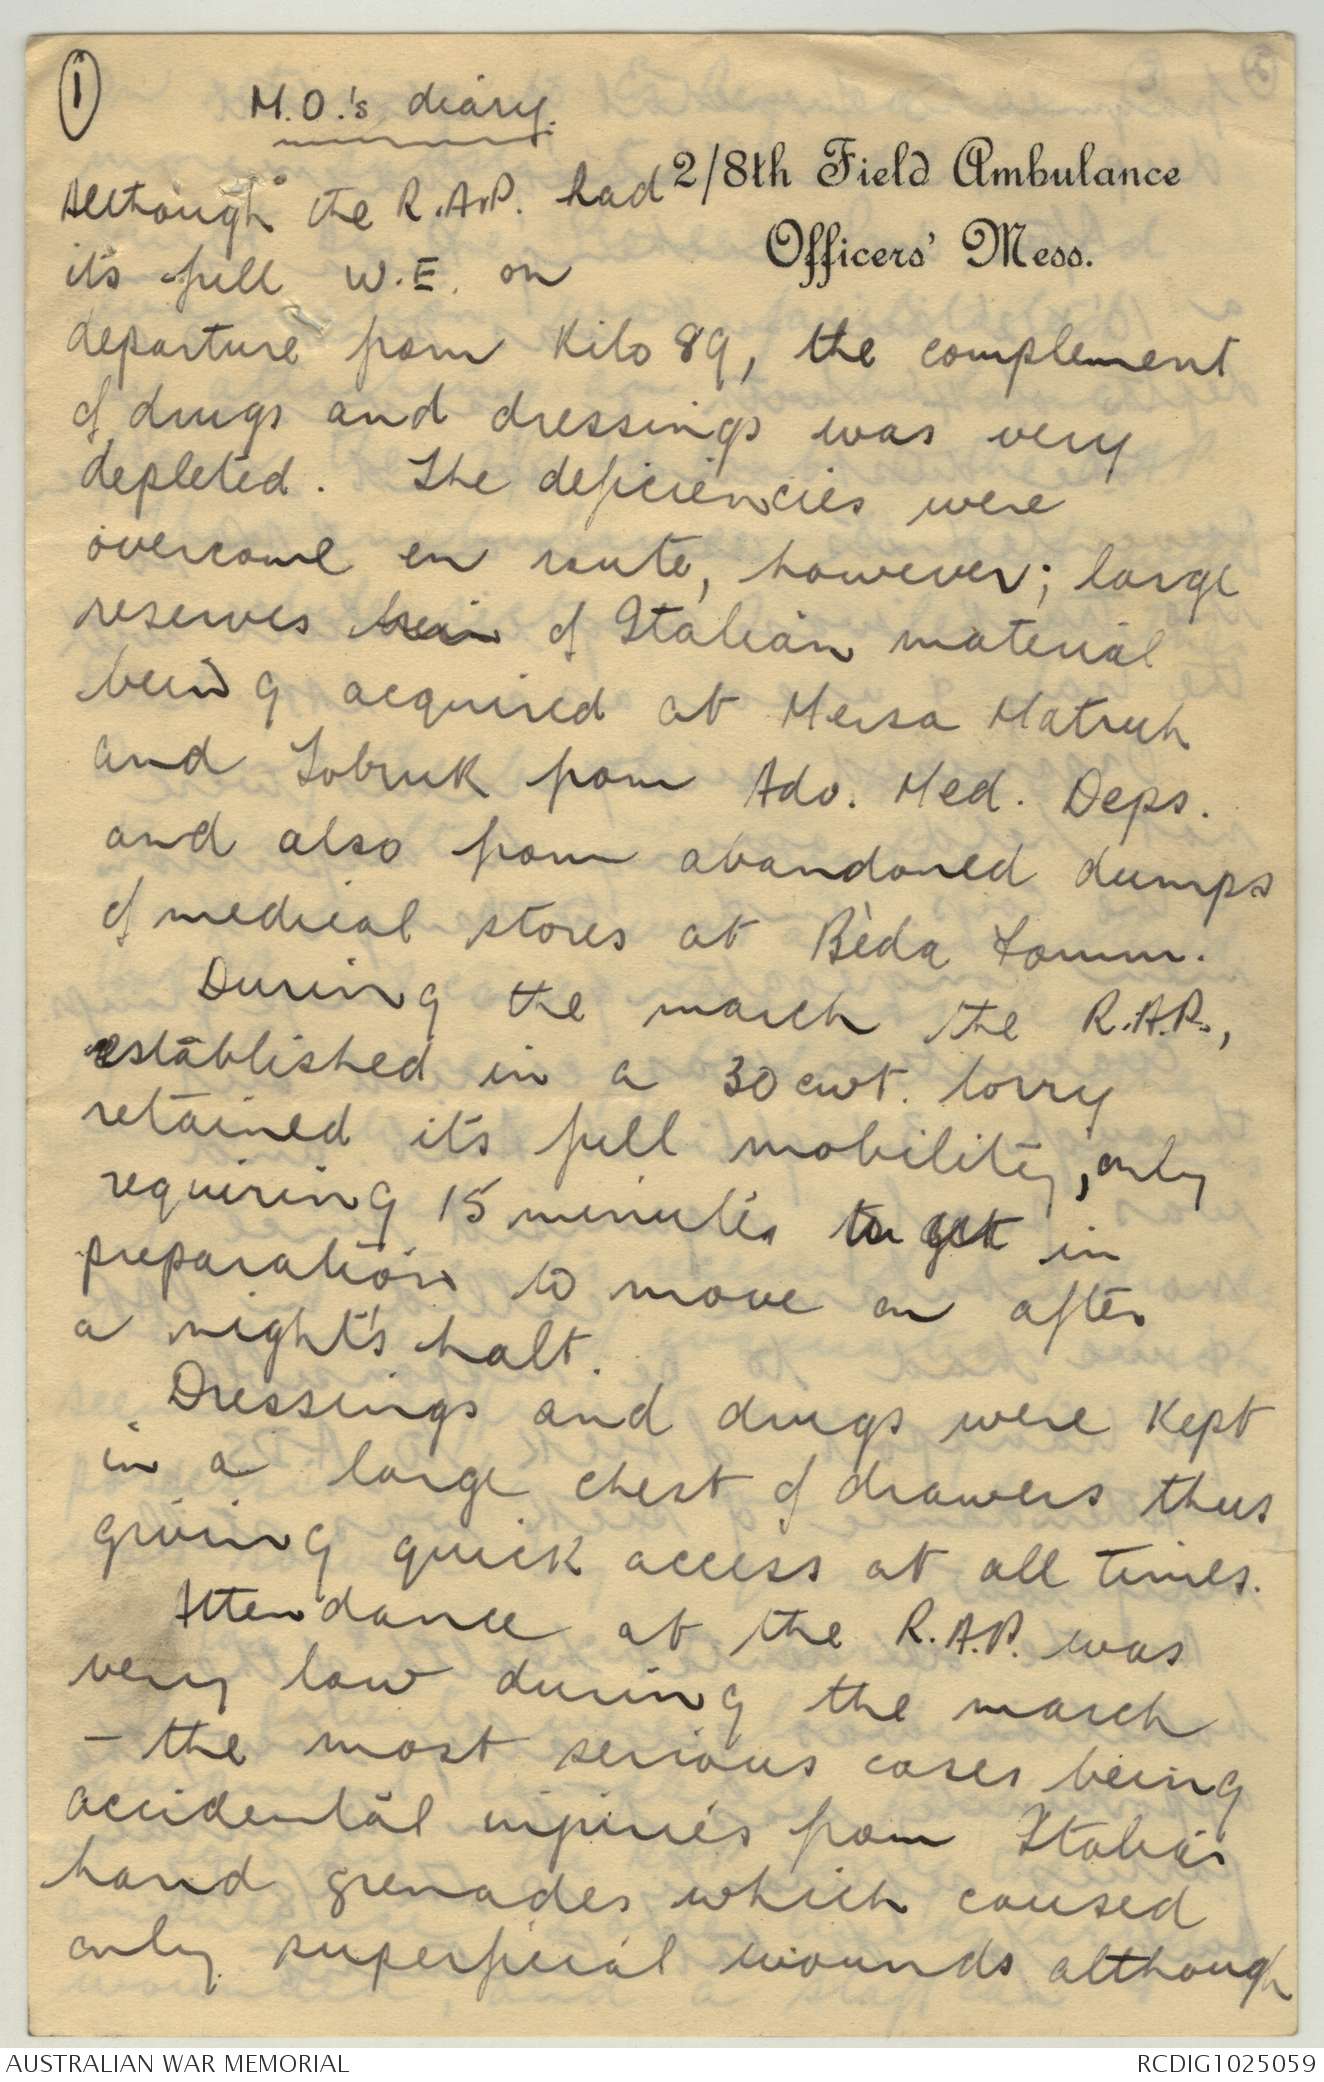 1
M.O.'s diary.
2/8th Field Ambulance
Officers' Mess.
Although the R.A.P. had
its full W.E. on
departure from Kilo 89, the complement
of drugs and dressings was very
depleted. The deficiencies were
overcome en route, however; large
reserves of Italian material
being acquired at Mersa Matruh
and Tobruk from Adv. Med. Deps.
and also from abandoned dumps
of medical stores at Beda Fomm.
During the march the R.A.P.,
established in a 30 cwt. lorry
retained its full mobility, only
requiring 15 minutes to get in
preparation to move on after
a night's halt.
Dressings and drugs were kept
in a large chest of drawers thus
giving quick access at all times.
Attendance at the R.A.P. was
very low during the march
- the most serious cases being
accidental injuries from Italian
hand grenades which caused
only superficial wounds although
AUSTRALIAN WAR MEMORIAL
RCDIG1025059